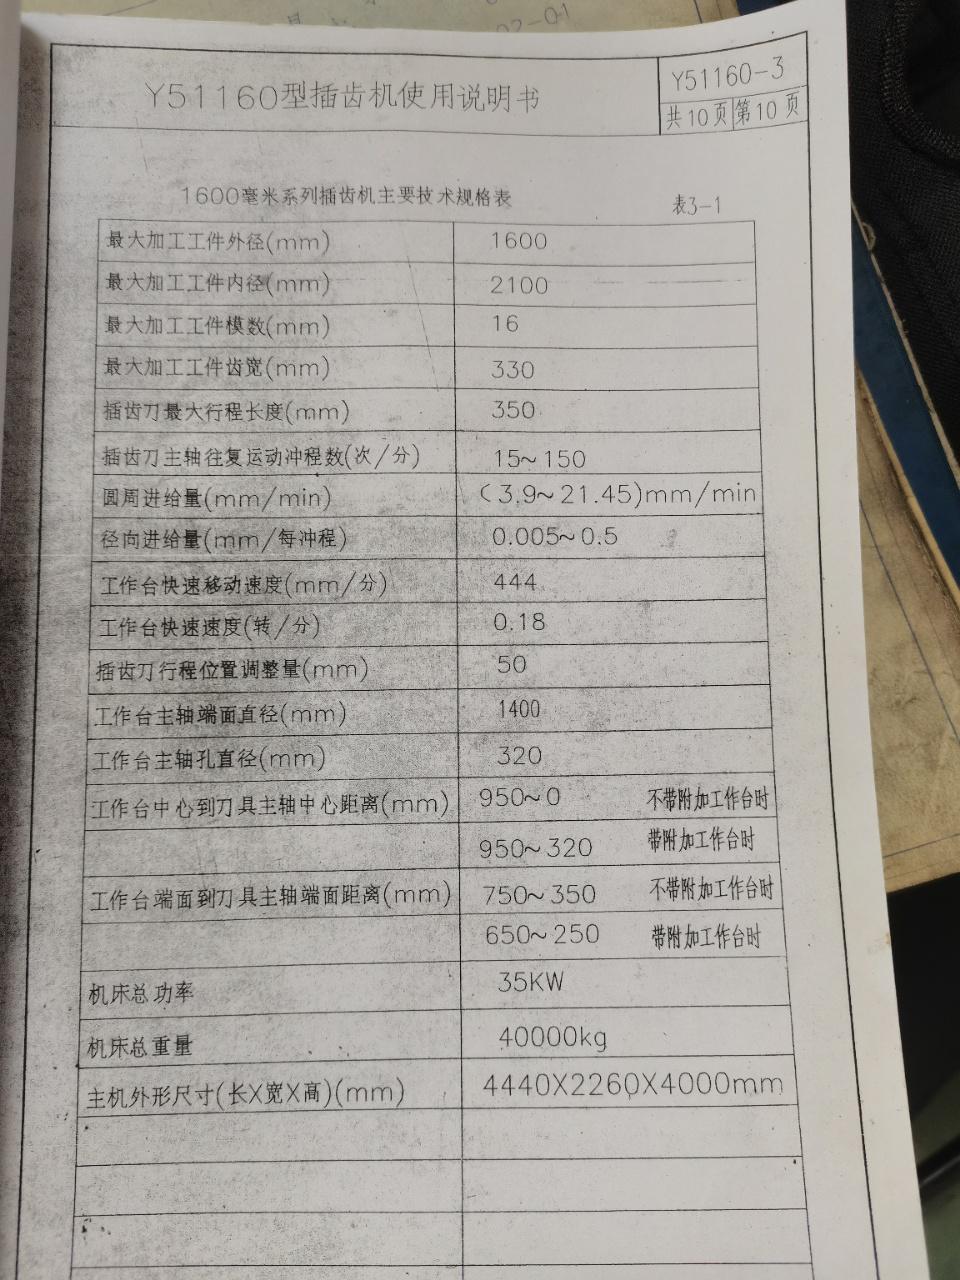 02-01
Y51160型插齿机使用说明书
Y51160-3
共10页 第10页
1600毫米系列插齿机主要技术规格表
表3-1
最大加工工件外径(mm) 1600
最大加工工件内径(mm) 2100
最大加工工件模数(mm) 16
最大加工工件齿宽(mm) 330
插齿刀最大行程长度(mm) 350
插齿刀主轴往复运动冲程数(次/分) 15~150
圆周进给量(mm/min) (3.9~21.45)mm/min
径向进给量(mm/每冲程) 0.005~0.5
工作台快速移动速度(mm/分) 444
工作台快速速度(转/分) 0.18
插齿刀行程位置调整量(mm) 50
工作台主轴端面直径(mm) 1400
工作台主轴孔直径(mm) 320
工作台中心到刀具主轴中心距离(mm) 950~0 不带附加工作台时
950~320 带附加工作台时
工作台端面到刀具主轴端面距离(mm) 750~350 不带附加工作台时
650~250 带附加工作台时
机床总功率 35KW
机床总重量 40000kg
主机外形尺寸(长X宽X高)(mm) 4440X2260X4000mm